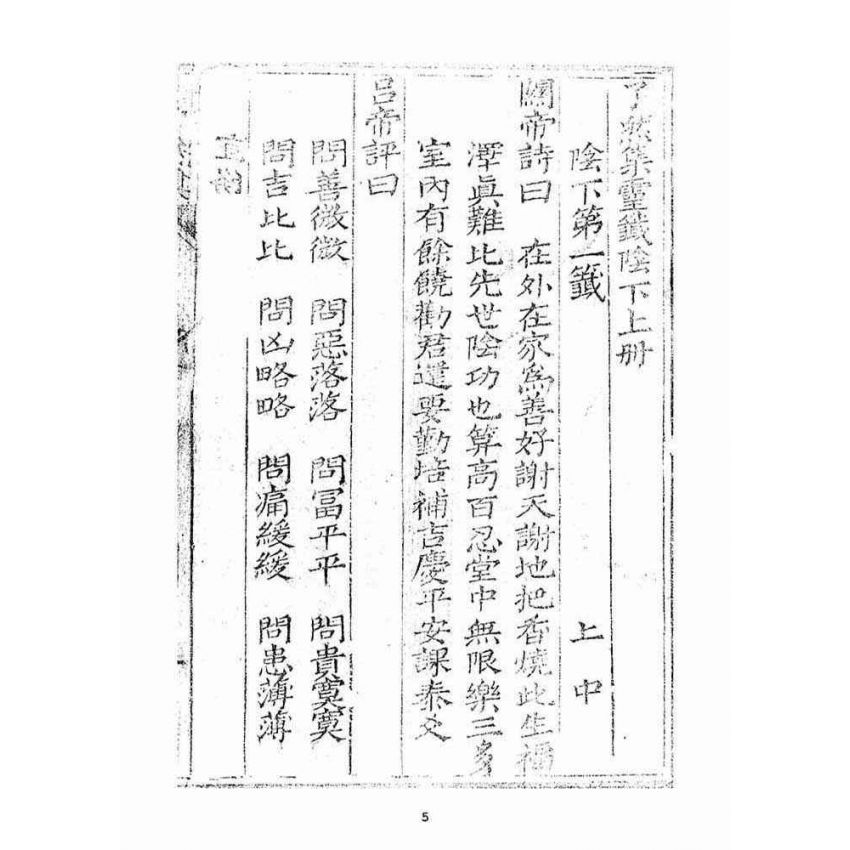 了然集靈籤陰下上册
陰下第一籤 上中
關帝詩曰 在外在家爲善好謝天謝地把香燒此生福
澤眞難比先世陰功也算高百忍堂中無限樂三多
室內有餘饒勸君還要勤培補吉慶平安課泰爻
呂帝評曰
問善微微 問惡落落 問冨平平 問貴寞寞
問吉比比 問凶略略 問痛緩緩 問患薄薄
5